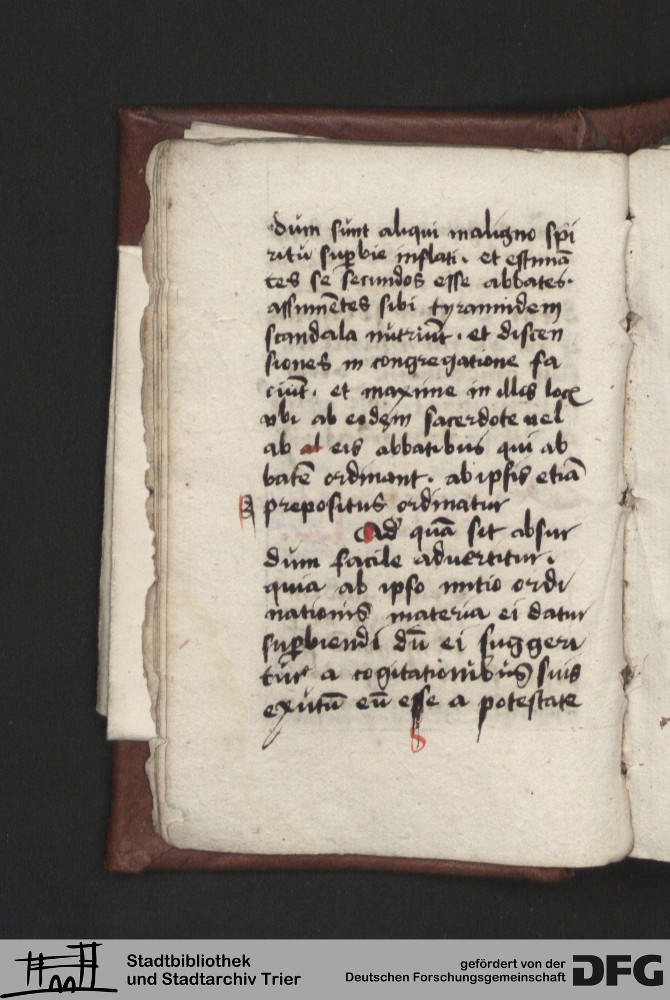 dum sunt aliqui maligno spi
ritu sup̱bie inflati · et estimā
tes se secundos esse abbates ·
assumētes sibi tyrannidem
scandala nutriūt · et discen
siones in congregatione fa
ciūt · et maxime in illis locꝭ
vbi ab eodem sacerdote uel
ab ab eis abbatibus qui ab
batē ordinant · ab ipsis etiā
prepositus ordinatur
Qd̕ quā sit absur
dum facile aduertitur ·
quia ab ipso initio ordi
nationis materia ei datur
sup̱biendi dū ei suggeri
tur a cogitationibus suis
exutū eū esse a potestate
Stadtbibliothek
und Stadtarchiv Trier
gefördert von der
Deutschen Forschungsgemeinschaft
DFG